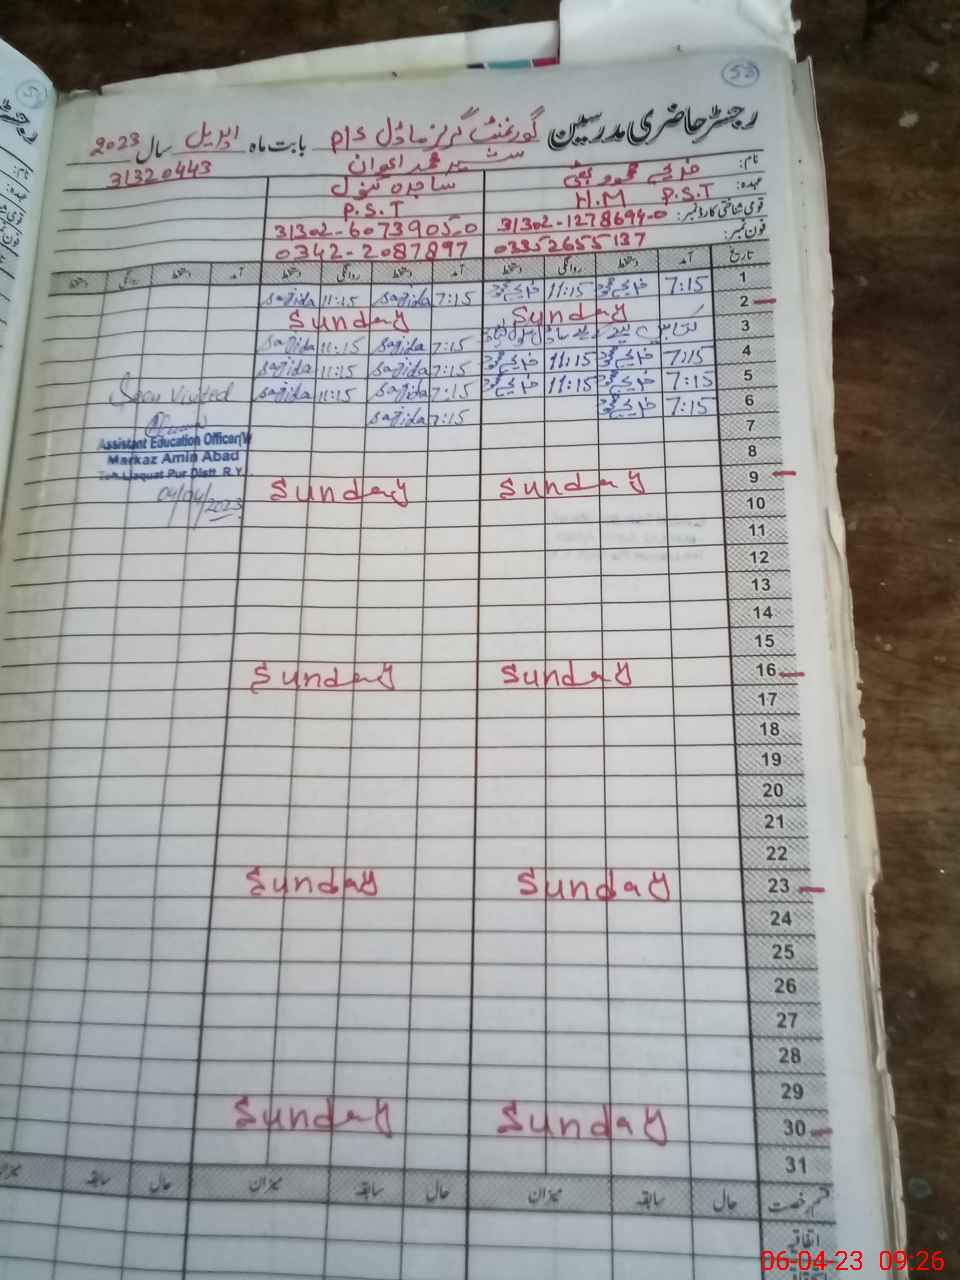 52
رجسٹر حاضری مدرسین گورنمنٹ گرلز ماڈل P/S بابت ماہ اپریل سال 2023
31320443
نام:
عہدہ: H.M P.S.T
P.S.T
قومی شناختی کارڈ نمبر: 31302-1278694-0 31302-6073905-0
فون نمبر: 03352655137 0342-2087897
تاریخ آمد دستخط روانگی دستخط آمد دستخط روانگی دستخط آمد دستخط روانگی دستخط
1 7:15 11:15 7:15 Sajida 11:15 Sajida
2 Sunday Sunday
3 7:15 Sajida 11:15 Sajida
4 7:15 11:15 7:15 Sajida 11:15 Sajida
5 7:15 11:15 7:15 Sajida 11:15 Sajida
6 7:15 7:15 Sajida
7
8
9 Sunday Sunday
10
11
12
13
14
15
16 Sunday Sunday
17
18
19
20
21
22
23 Sunday Sunday
24
25
26
27
28
29
30 Sunday Sunday
31
قسم رخصت حال سابقہ میزان حال سابقہ میزان حال سابقہ میزان
اتفاقیہ
Visited
Assistant Education Officer(W
Markaz Amin Abad
Liaquat Pur Distt. R.Y
04/04/2023
06-04-23 09:26